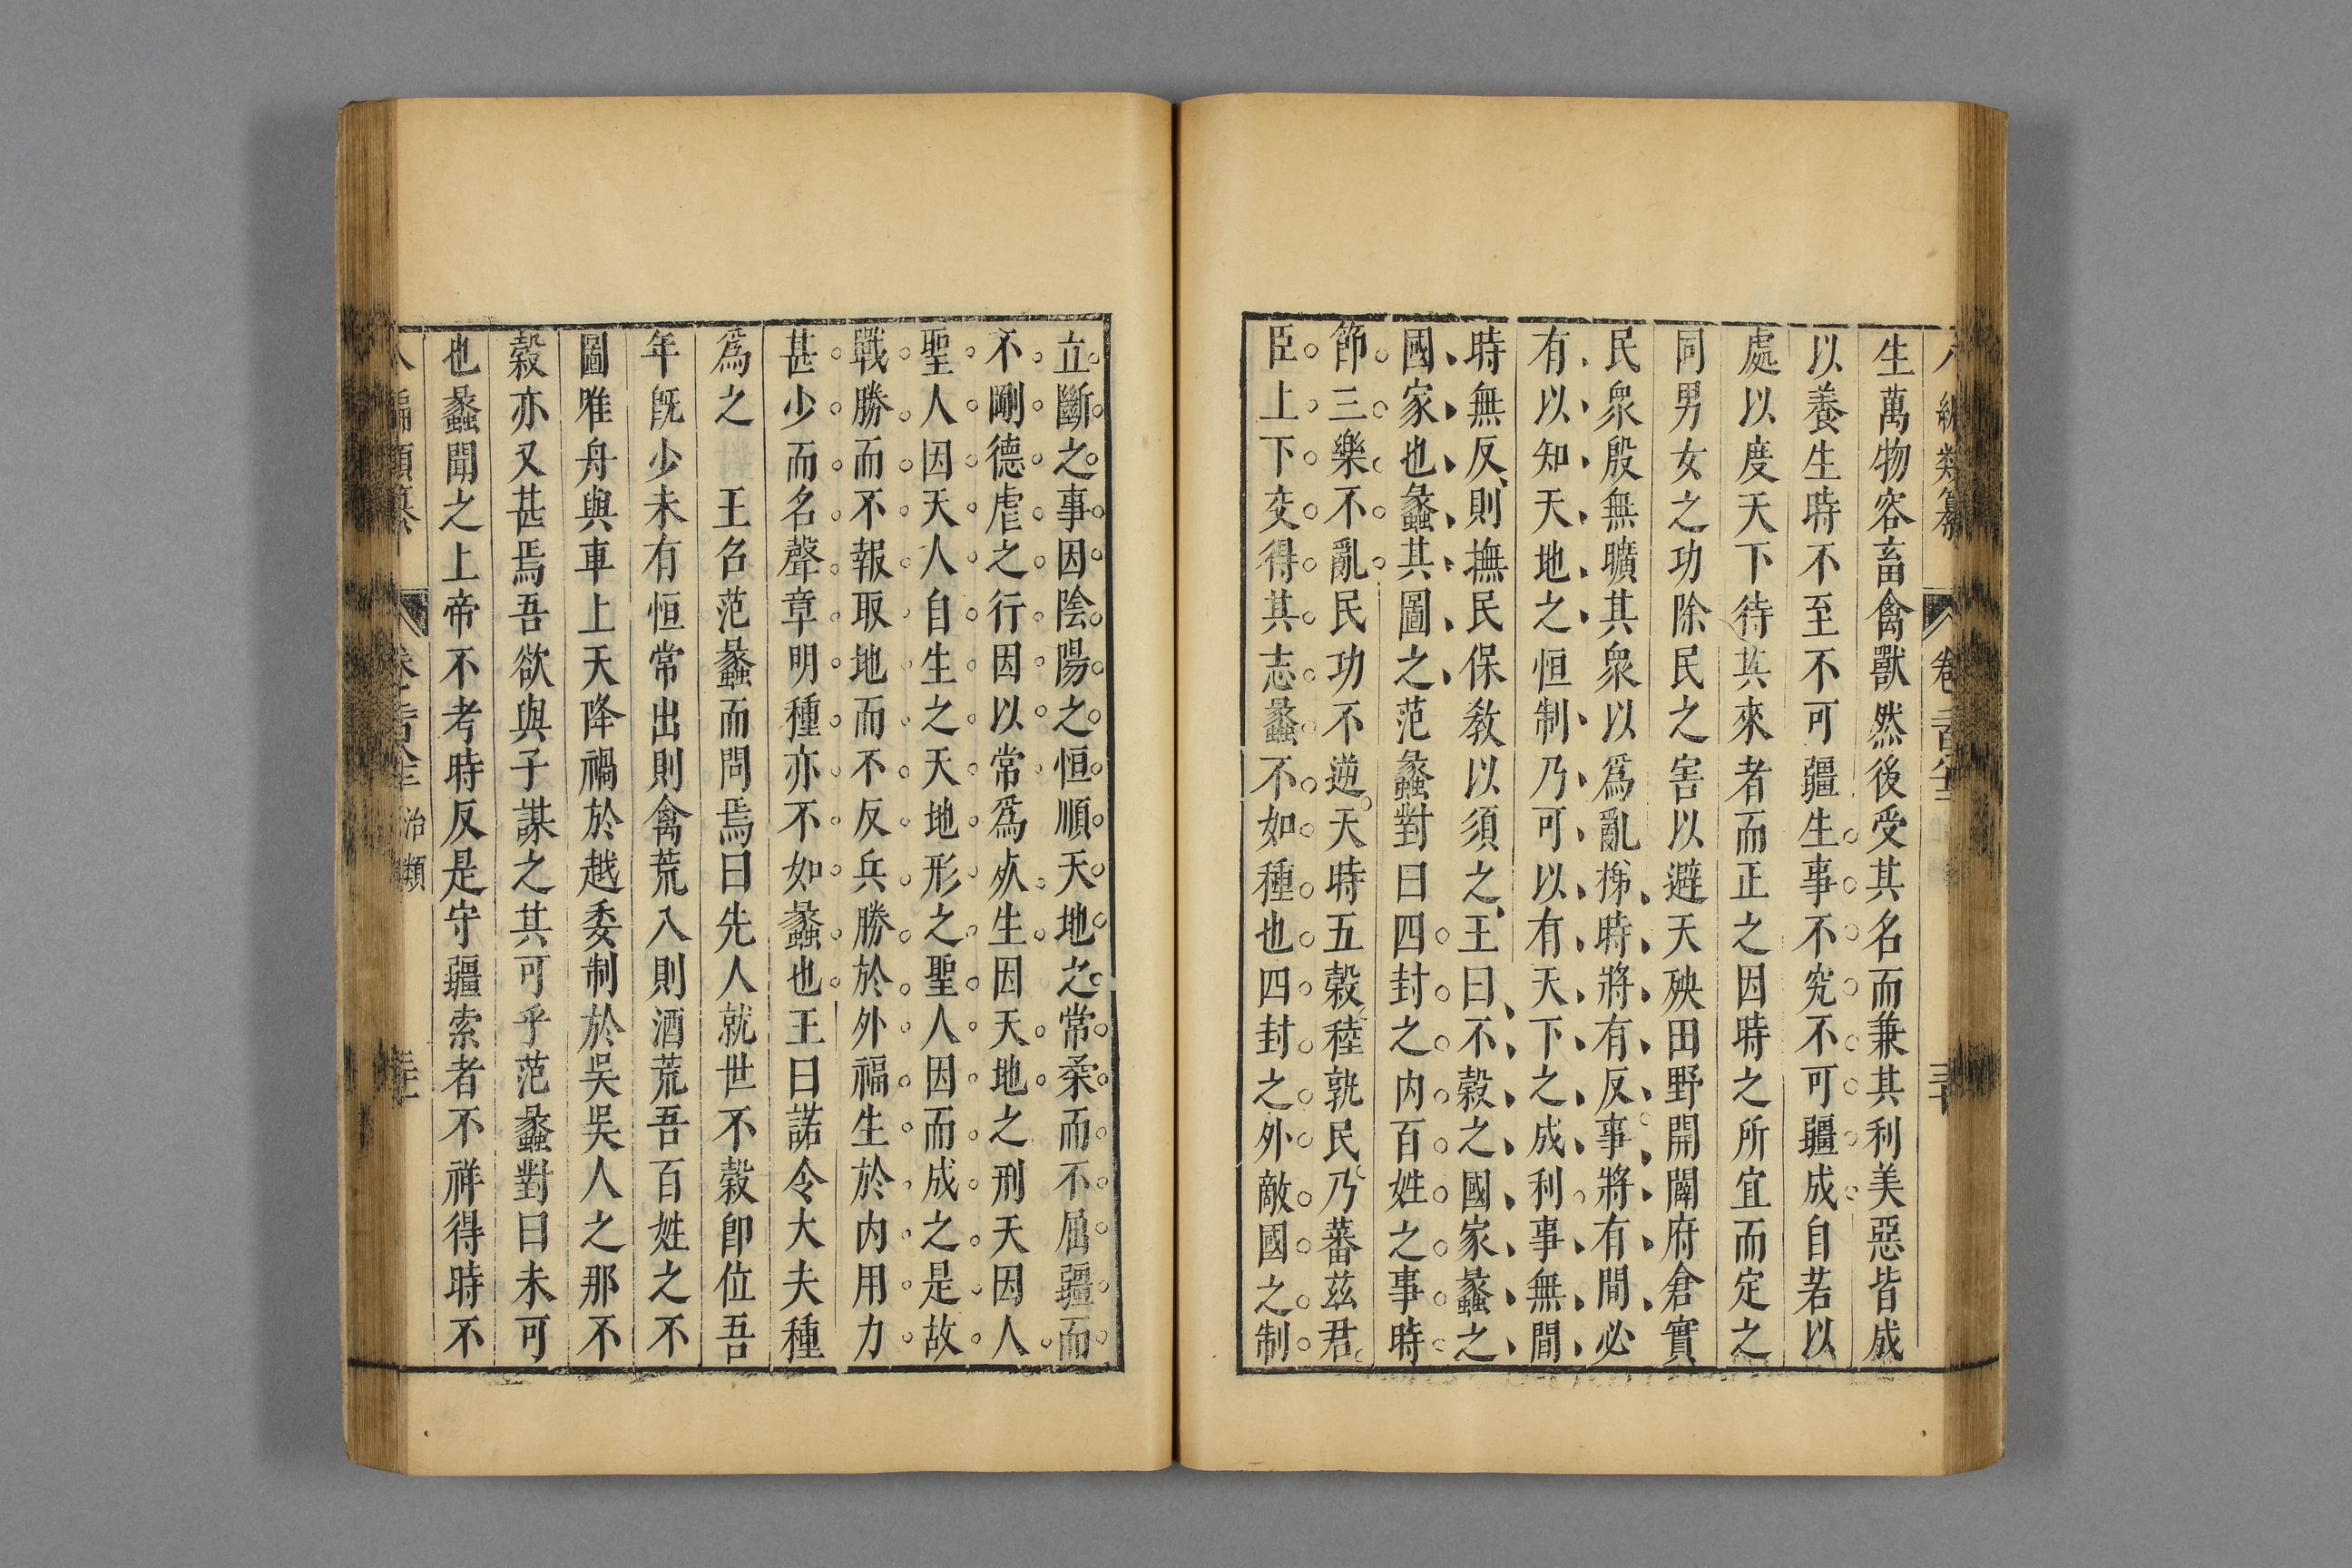 編類纂 卷一百 三十
生萬物容畜禽獸然後受其名而兼其利美惡皆成
以養生時不至不可疆生事不究不可疆成自若以
處以度天下待其來者而正之因時之所宜而定之
同男女之功除民之害以避天殃田野開闢府倉實
民衆殷無曠其衆以爲亂梯時將有反事將有間必
有以知天地之恒制乃可以有天下之成利事無間
時無反則撫民保教以須之王曰不穀之國家蠡之
國家也蠡其圖之范蠡對曰四封之内百姓之事時
節三樂不亂民功不逆天時五穀稑孰民乃蕃茲君
臣上下交得其志蠡不如種也四封之外敵國之制
立斷之事因陰陽之恒順天地之常柔而不屈疆而
不剛德虐之行因以常爲𣦸生因天地之刑天因人
聖人因天人自生之天地形之聖人因而成之是故
戰勝而不報取地而不反兵勝於外福生於内用力
甚少而名聲章明種亦不如蠡也王曰諾令大夫種
爲之 王召范蠡而問焉曰先人就世不穀卽位吾
年旣少未有恒常出則禽荒入則酒荒吾百姓之不
圖唯舟與車上天降禍於越委制於吳吳人之那不
穀亦又甚焉吾欲與子謀之其可乎范蠡對曰未可
也蠡聞之上帝不考時反是守疆索者不祥得時不
治類